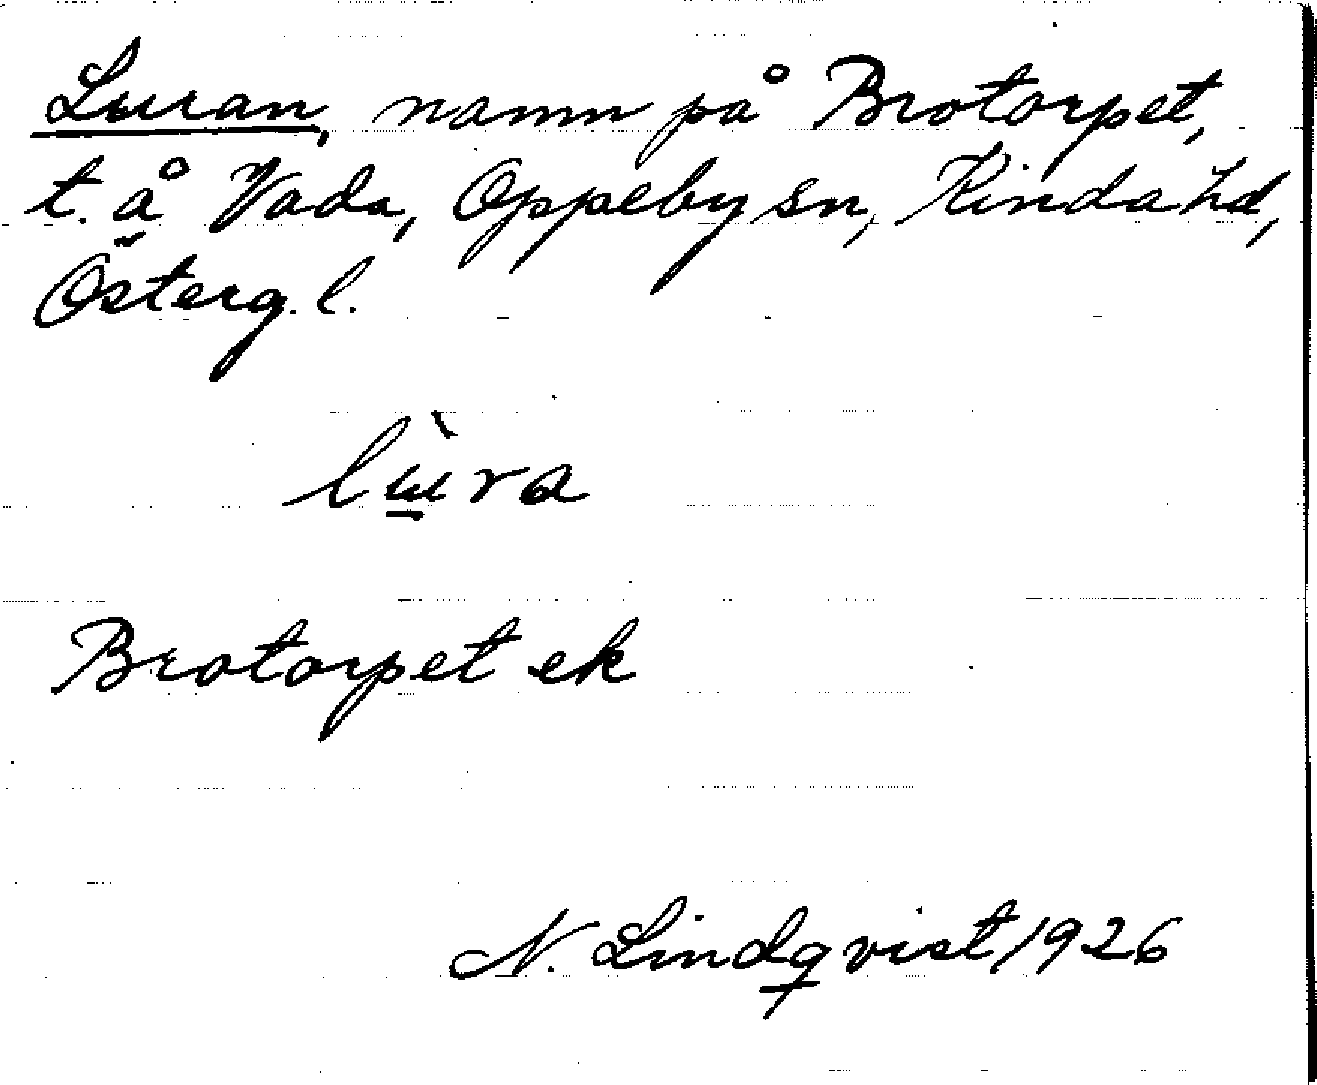 Luran, namn på Brotorpet,
t. å Vada, Oppeby sn, Kinda hd,
Österg. l.
lùra
Brotorpet ek
N. Lindqvist 1926